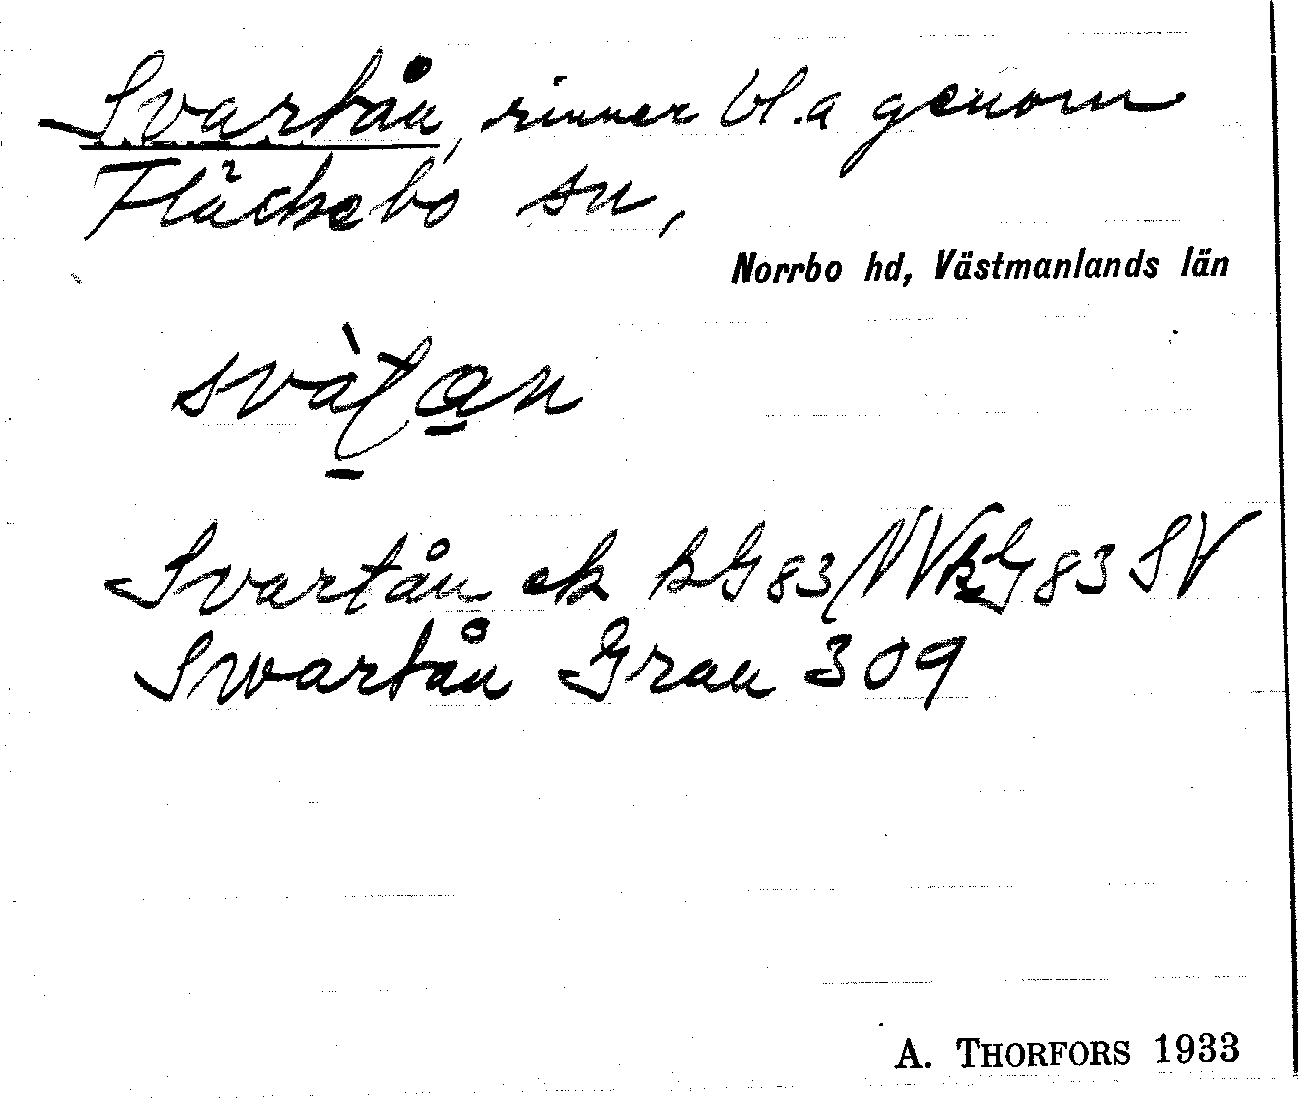 Svartån, rinner bl.a genom
Fläckebo sn,
Norrbo hd, Västmanlands län
Svartån ek kG 83 NV kG 83 SV
Swartån Grau 309
A. THORFORS 1933